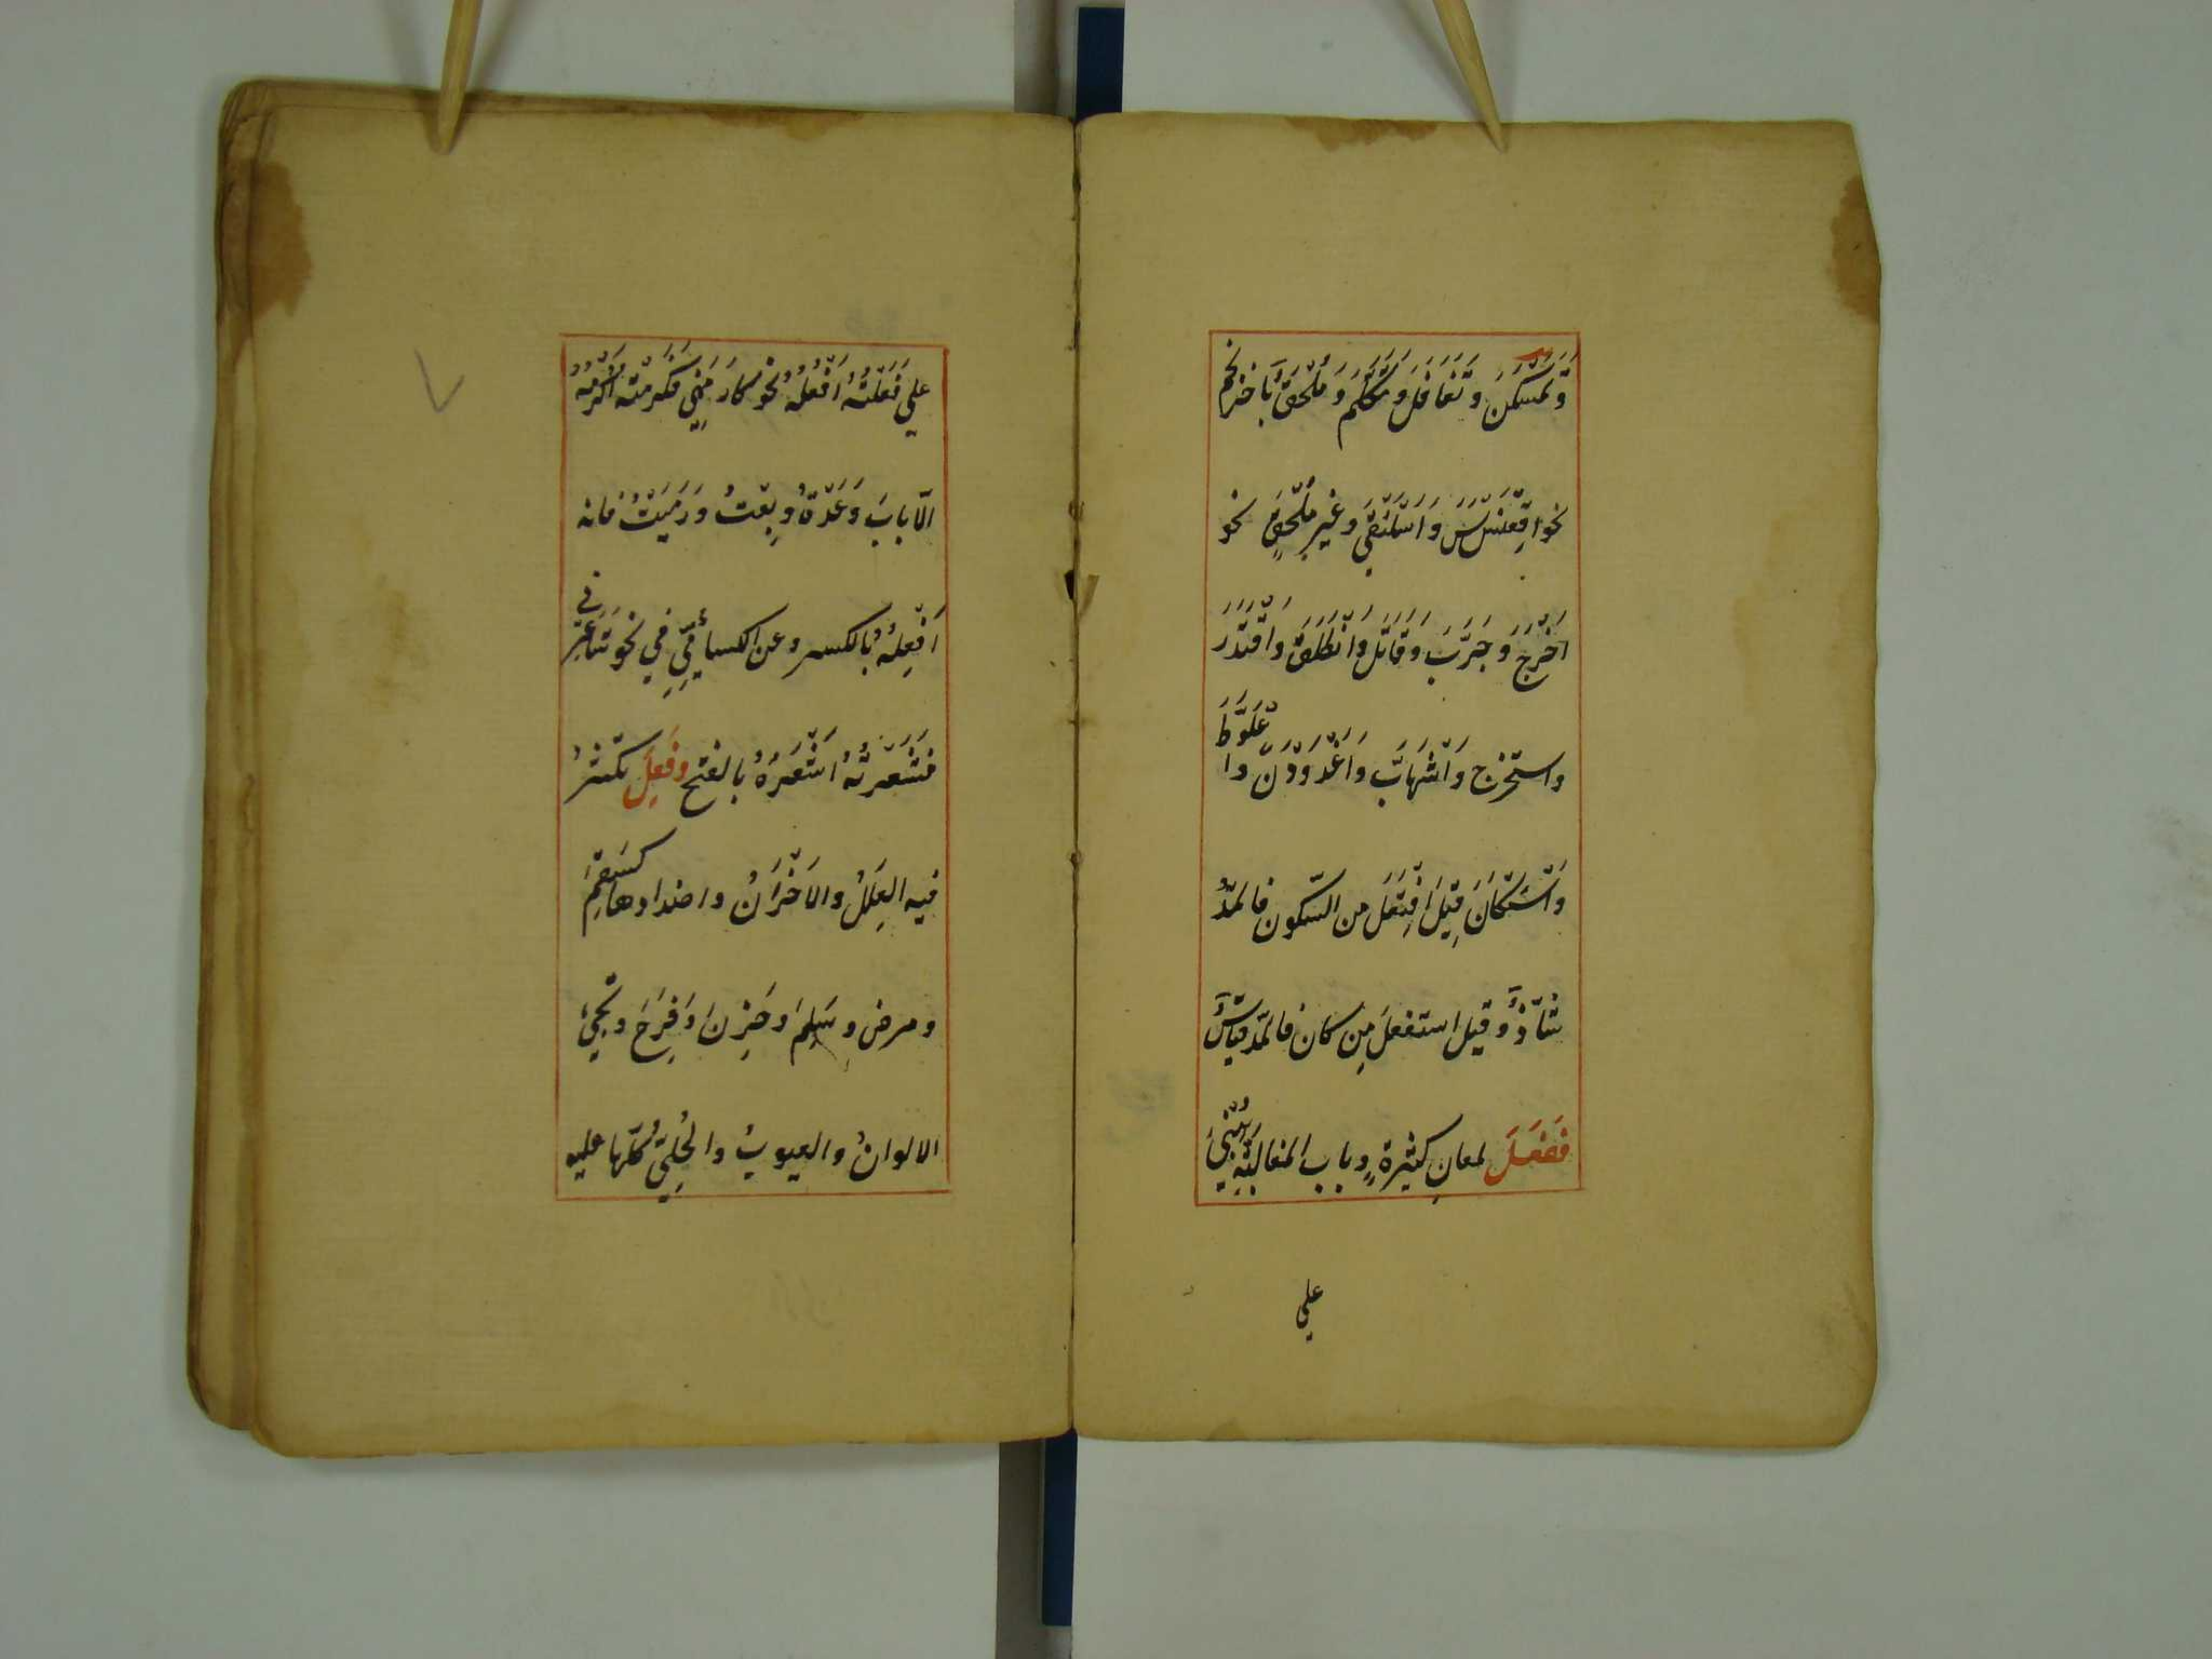 وَتَمَسْكَنَ وَتَغَافَلَ وَتَكَلَّمَ وَمُلْحَقٌ بِاحرنجم
نحو اقْعَنْسَسَ وَاسْلَنْقَى وغيرُ مُلْحَقٍ نحو
اَخْرَجَ وَجَرَّبَ وَقَاتَلَ وَانْطَلَقَ وَاقْتَدَرَ
واستخرج وَاشْهَابَّ وَاغْدَوْدَنَ واعْلَوَّطَ
وَاسْتَكَانَ قِيْلَ افْتَعَلَ من السّكون فالمَدُّ
شَاذٌّ وَقيل استفعلَ مِن كان فالمَدّ قِيَاسٌ
فَفَعَلَ لمعانٍ كثيرةٍ وباب المغالبَةِ يُبْنَى
على
على فَعَلْتُهُ اَفْعُلُهُ نحو كَارَمَنِي فَكَرَمْتُه اَكْرُمُهُ
الّا بابَ وَعَدْتُ وبِعْتُ وَرَمَيْتُ فانه
اَفْعِلُهُ بالكسر وعن الكسائيِّ في نحو شَاعَرَنِي
فَشَعَرْتُهُ اَشْعَرُهُ بالفتح وفَعِلَ تكثرُ
فيه العِلَلُ والاَحْزَانُ واضدادها كسَقِمَ
ومرض وسَلِمَ وحَزِنَ وَفَرِحَ وتجيُ
الالوانُ والعيوبُ والحُلِيُّ كلّها عليه
۷